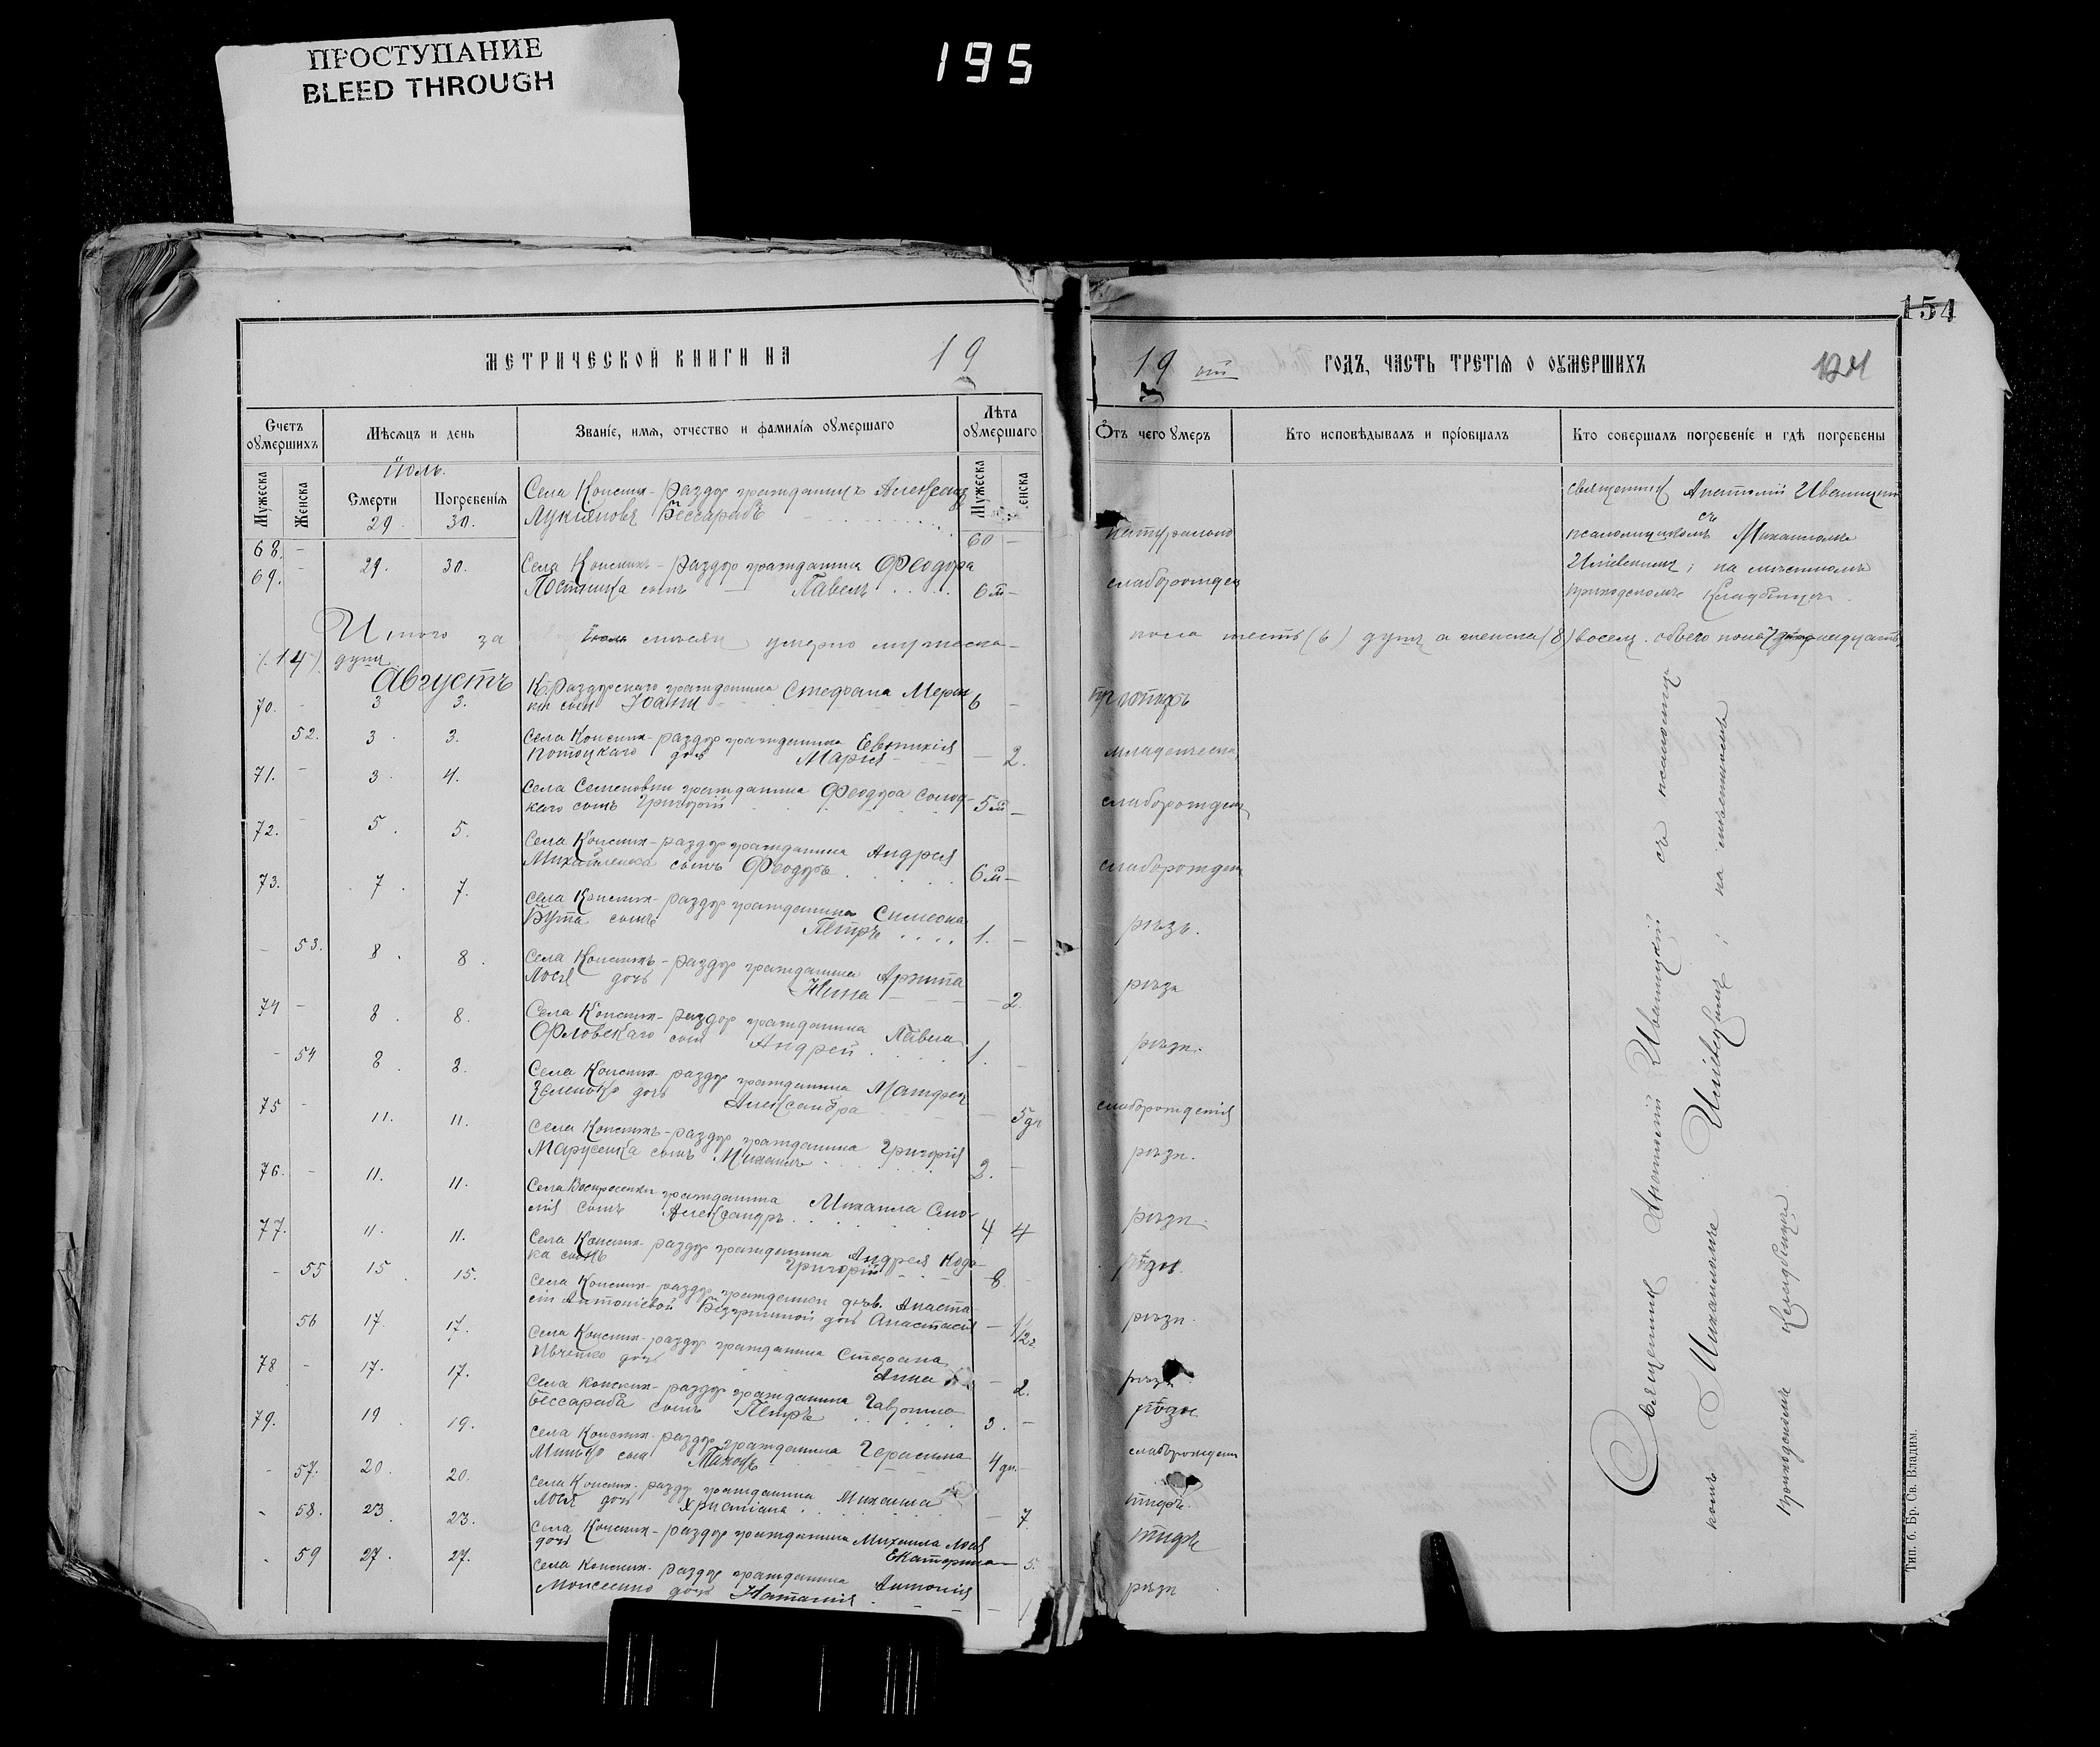 ПРОСТУПАНИЕ
BLEED THROUGH
195
154
МЕТРИЧЕСКОЙ КНИГИ НА 19
19 ГОДЪ, ЧАСТЬ ТРЕТІЯ О ОУМЕРШИХЪ
124
Счетъ оумершихъ
Мѣсяцъ и день
Званіе, имя, отчество и фамилія оумершаго
Лѣта оумершаго
Отъ чего умеръ
Кто исповѣдывалъ и пріобщалъ
Кто совершалъ погребеніе и гдѣ погребены
Мужеска
Женска
Іюль.
Смерти
Погребенія
Мужеска
Женска
68. - 29. 30. Села Конскихъ-Раздор гражданинъ Александръ
Лукіяновъ Бессарабъ 60 -
натурально
69. - 29. 30. Села Конскихъ-Раздор гражданина Феодора
Постника сынъ Павелъ 6 м -
слаборожден
Священник Анатолій Иваницкій
съ
псаломщикомъ Михаиломъ
на мѣстномъ
приходскомъ кладбищѣ.
Итого за Іюль мѣсяц умерло мужеска
пола шесть (6) душъ а женска (8) восем. обоего пола
(14) душ
Августъ
70. - 3 3. К-Раздорскаго гражданина Стефана
сын Іоанн 6 -
52. 3. 3. Села Конских-раздор гражданина Евтихія
Потоцкаго дочь Марія - 2.
младенческа
71. - 3. 4. Села Семеновки гражданина Феодора
сынъ Григорій 5 м -
слаборожден
72. - 5. 5. Села Конских-раздор гражданина Андрея
Михайленка сынъ Феодоръ 6 м -
слаборожден
73. 7. 7. Села Конских-раздор гражданина Симеона
Бута сынъ Петръ 1. -
рѣзь.
- 53. 8. 8. Села Конскихъ-раздор гражданина
Лося дочь Нина - 2
рѣзь
74 - 8. 8. Села Конских-раздор гражданина Павла
Орловскаго сын Андрей 1. -
рѣзь.
- 54 8. 8. Села Конских раздор гражданина Матфея
Зеленько дочь Александра - 5 дн
слаборожденія
75 - 11. 11. Села Конскихъ-раздор гражданина Григорія
Марусенка сынъ Михаилъ 2. -
рѣзь.
76. - 11. 11. Села Воскресенки гражданина Михаила
сынъ Александръ 4 4
рѣзь.
77. 11. 11. Села Конских-раздор гражданина Андрея
сынъ Григорій 8.
рѣзь.
- 55 15. 15. Села Конских-раздор гражданки дѣв. Анаста-
сіи Антоніевой дочь Анастасія - 1/2 г
рѣзь.
56 17. 17. Села Конских-раздор гражданина Стефана
Ивченко дочь Анна - 2.
рѣзь
78 - 17. 17. Села Конских-раздор гражданина Гавріила
Бессараба сынъ Петръ 3. -
рѣзь
79. 19. 19. Села Конских-раздор гражданина Герасима
сын 4 дн. -
слаборожден
- 57. 20. 20. Села Конских-раздор гражданина Михаила
Лося дочь Христіана - 7.
тифъ.
- 58. 23. 23. Села Конских-раздор гражданина Михаила Лося
дочь Екатерина - 5.
тифъ
- 59 27. 27. Села Конских-раздор гражданина Антонія
дочь Наталія - 1
рѣзь
Священник Анатолій Иваницкій съ псаломщи-
комъ Михаиломъ ; на мѣстномъ
приходскомъ кладбищѣ.
Тип. б. Бр. Св. Владим.